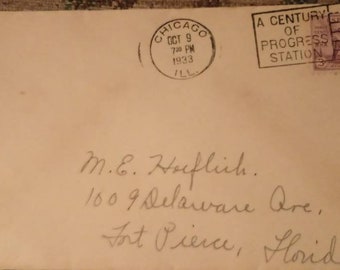 CHICAGO
OCT 9
7 30 PM
1933
ILL.
A CENTURY
OF
PROGRESS
STATION
M. E. Hoeflich.
1009 Delaware Ave,
Fort Pierce, Florid